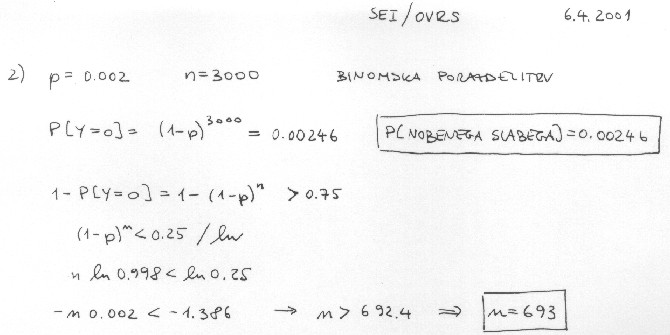 SEI/OVRS 6.4.2001
2) p = 0.002 n=3000 BINOMSKA PORAZDELITEV
P[Y=0] = (1-p)^3000 = 0.00246 P[NOBENEGA SLABEGA]=0.00246
1-P[Y=0] = 1-(1-p)^n > 0.75
(1-p)^n < 0.25 / ln
n ln 0.998 < ln 0.25
-n 0.002 < -1.386 → n > 692.4 ⇒ n=693